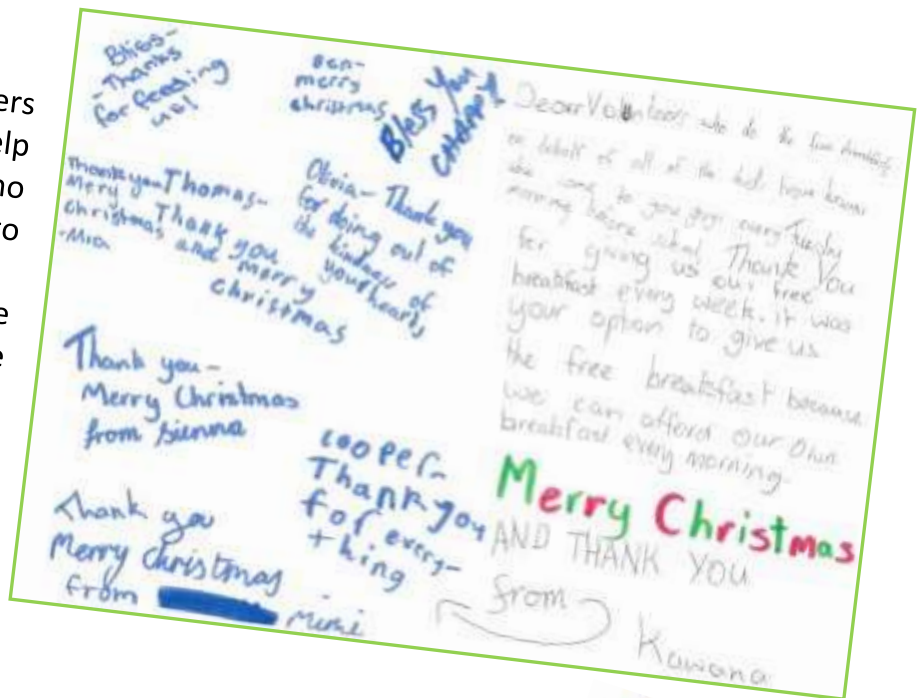 ers
elp
no
to
e
e
Bliss-
-Thanks
for feeding
us!
Ben-
merry
christmas
Bless You
CHAPPY!
Thankyou-Thomas-
Mery Thank you
Christmas and merry
-Mia christmas
Olivia- Thank you
for doing out of
the kindness of
your hearts
Thank you-
Merry Christmas
from Sienna
cooper-
Thank you
for every-
thing
Thank you
Merry Christmas
from Mimi
Dear Volunteers who do the
on behalf of all of the kids
who come to you guys every Tuesday
morning before school Thank You
for giving us our free
breakfast every week. it was
your option to give us
the free breakfast because
we can afford our own
breakfast every morning.
Merry Christmas
AND THANK YOU
from
Kawana